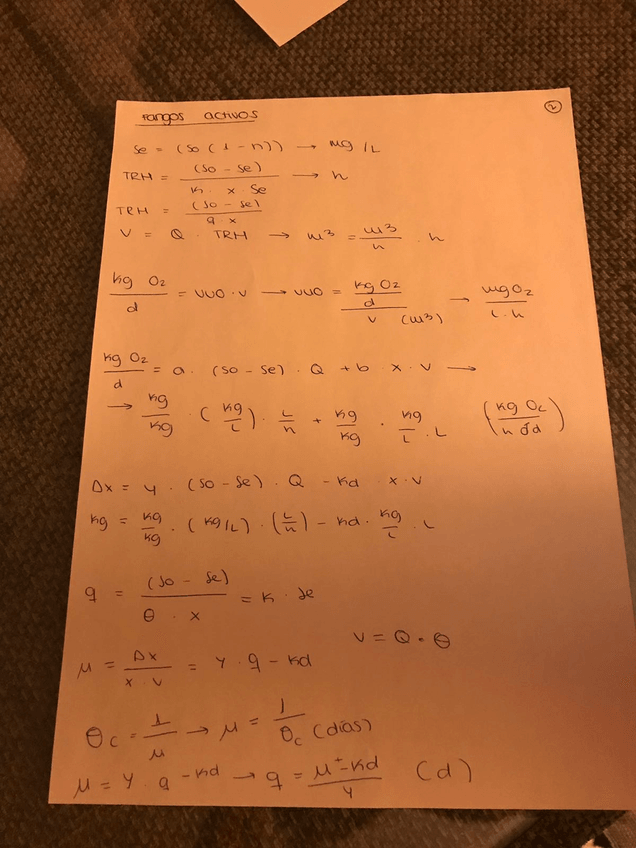 Fangos activos
2
Se = (So (1 - n)) → mg/L
TRH = (So - Se) / K · x · Se → h
TRH = (So - Se) / q x
V = Q · TRH → m³ = m³/h · h
kg O₂/d = VUO · V → VUO = (kg O₂/d) / V (m³) → mgO₂/L·h
kg O₂/d = a · (So - Se) · Q + b · x · V →
→ kg/kg · (kg/L) · L/h + kg/kg · kg/L · L (kg O₂/h ó d)
Δx = y · (So - Se) · Q - Kd · x · V
kg = kg/kg · (kg/L) · (L/h) - Kd · kg/L · L
q = (So - Se) / θ · x = K · Se
V = Q · θ
μ = Δx / x · V = y · q - Kd
θc = 1/μ → μ = 1/θc (días)
μ = y · q - Kd → q = μ + Kd / y (d)